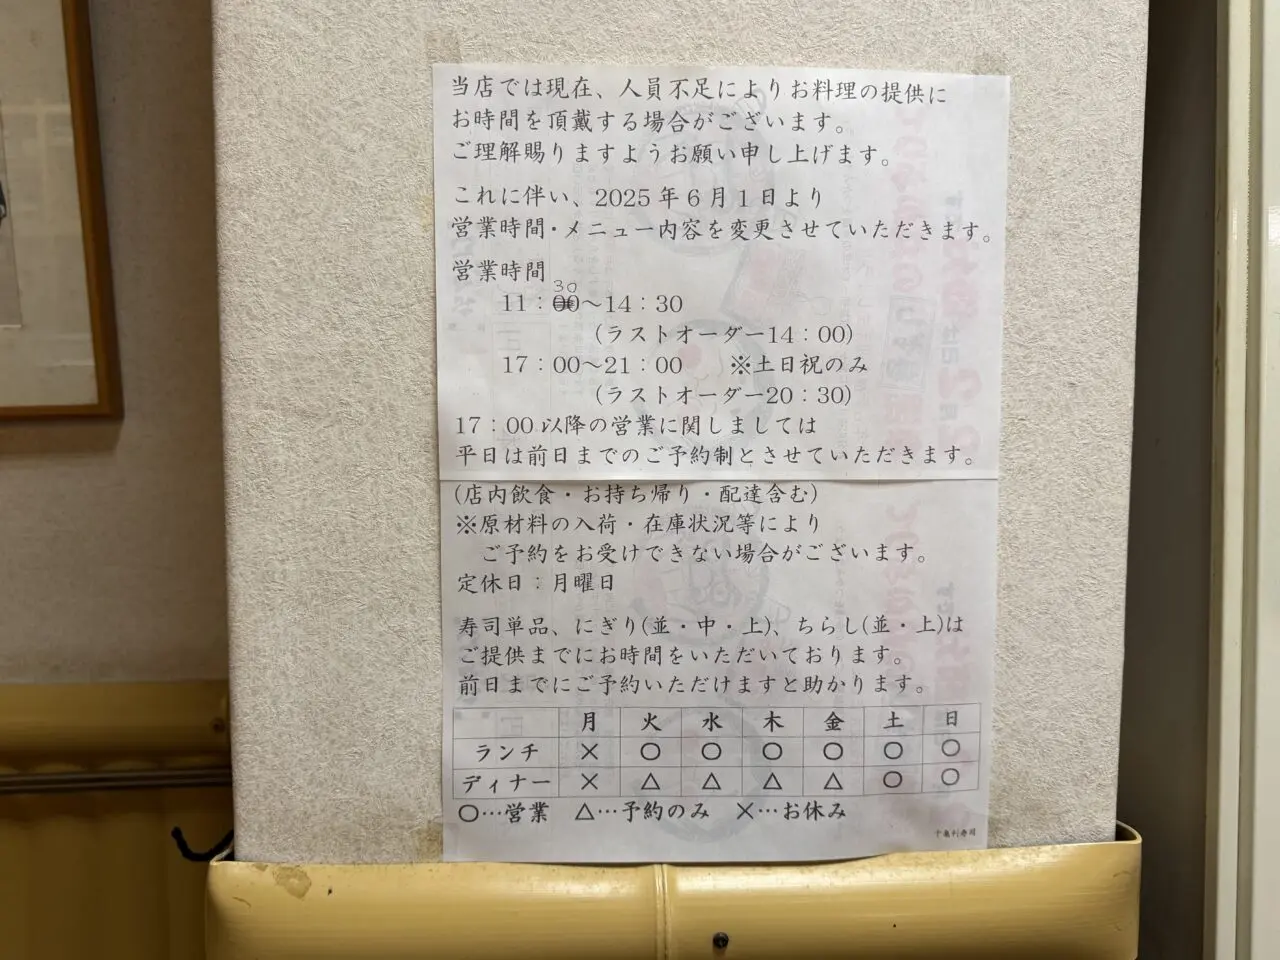 当店では現在、人員不足によりお料理の提供に
お時間を頂戴する場合がございます。
ご理解賜りますようお願い申し上げます。
これに伴い、2025年6月1日より
営業時間・メニュー内容を変更させていただきます。
営業時間
30
11：00～14：30
（ラストオーダー14：00）
17：00～21：00　※土日祝のみ
（ラストオーダー20：30）
17：00以降の営業に関しましては
平日は前日までのご予約制とさせていただきます。
（店内飲食・お持ち帰り・配達含む）
※原材料の入荷・在庫状況等により
ご予約をお受けできない場合がございます。
定休日：月曜日
寿司単品、にぎり(並・中・上)、ちらし(並・上)は
ご提供までにお時間をいただいております。
前日までにご予約いただけますと助かります。
月 火 水 木 金 土 日
ランチ × ○ ○ ○ ○ ○ ○
ディナー × △ △ △ △ ○ ○
○…営業　△…予約のみ　×…お休み